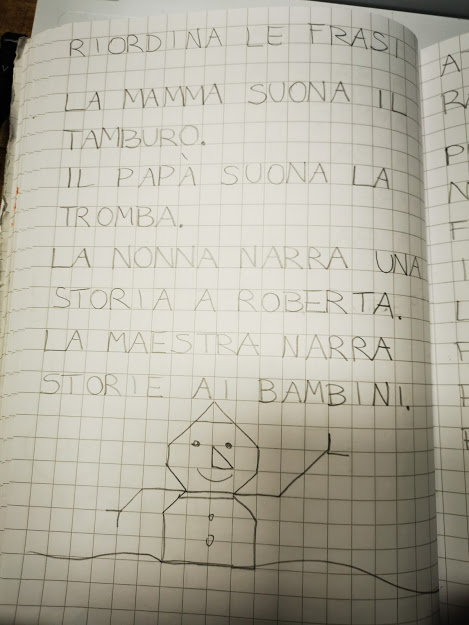 RIORDINA LE FRASI
LA MAMMA SUONA IL
TAMBURO.
IL PAPÀ SUONA LA
TROMBA.
LA NONNA NARRA UNA
STORIA A ROBERTA.
LA MAESTRA NARRA
STORIE AI BAMBINI.